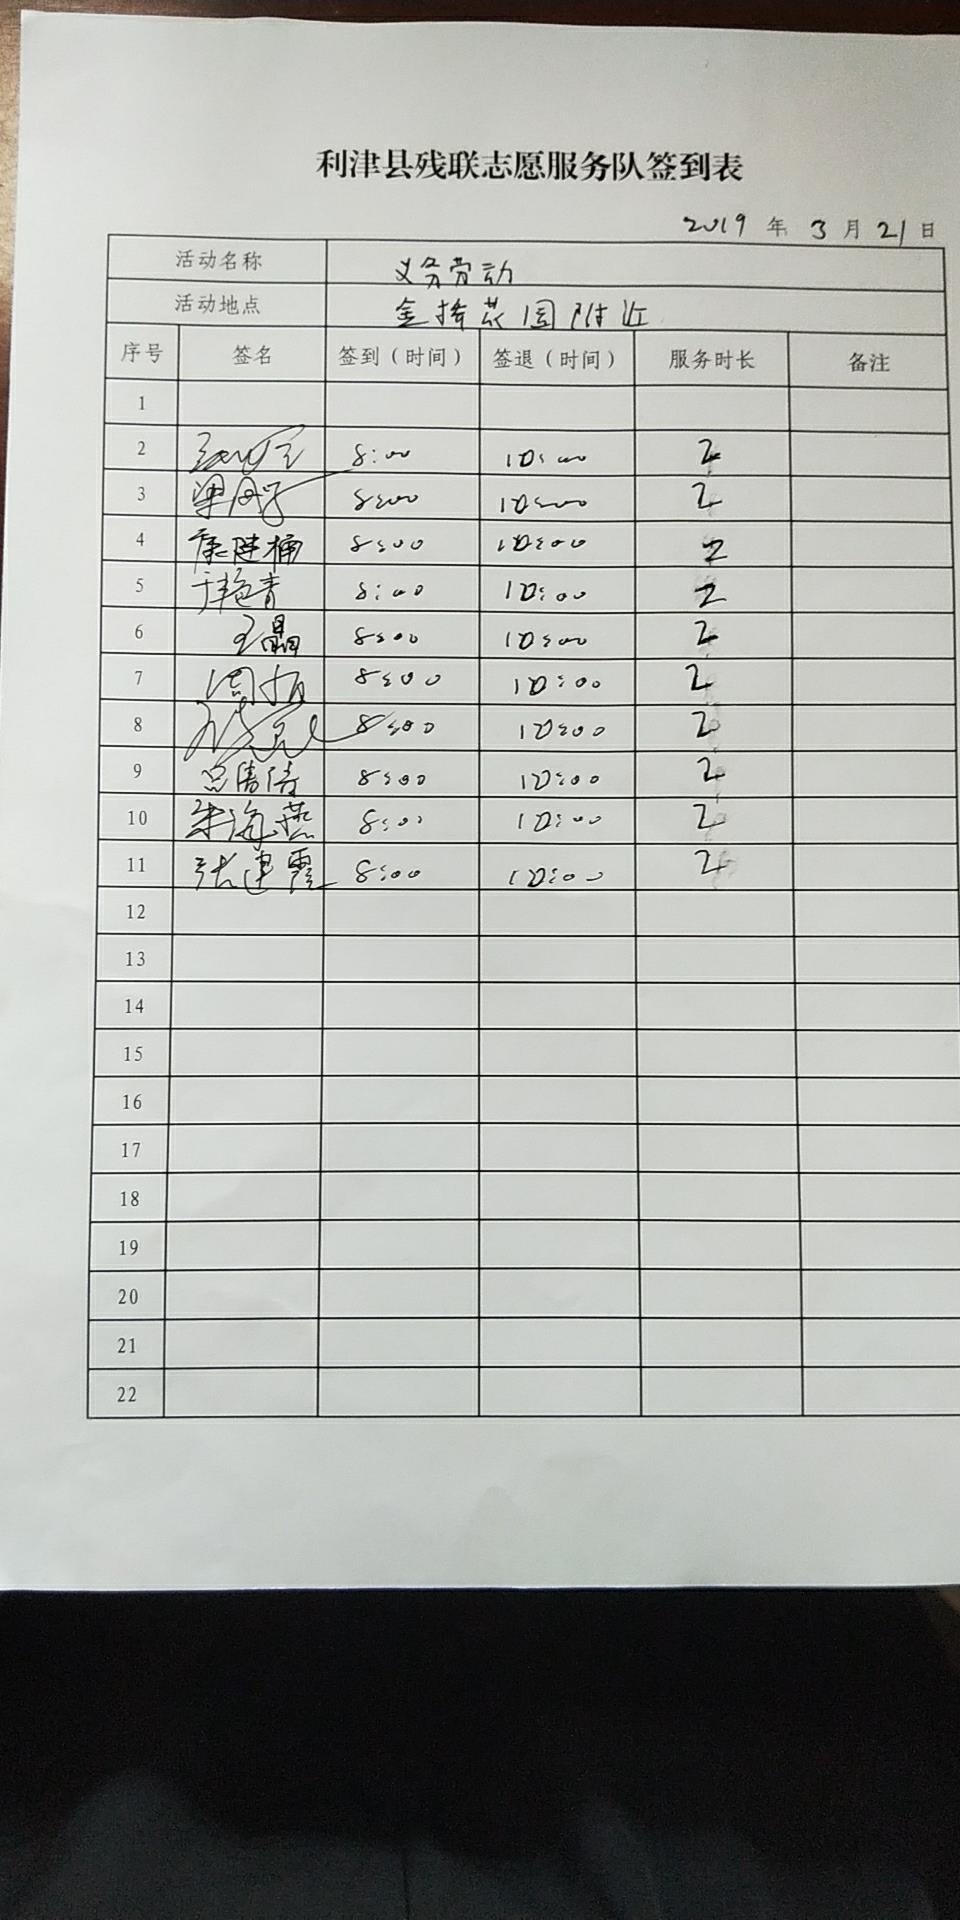 利津县残联志愿服务队签到表
2019 年 3 月 21 日
活动名称 义务劳动
活动地点 花园附近
序号 签名 签到（时间） 签退（时间） 服务时长 备注
1
2 8:00 10:00 2
3 8:00 10:00 2
4 康建楠 8:00 10:00 2
5 于艳青 8:00 10:00 2
6 王晶 8:00 10:00 2
7 8:00 10:00 2
8 8:00 10:00 2
9 8:00 10:00 2
10 朱海燕 8:00 10:00 2
11 张建霞 8:00 10:00 2
12
13
14
15
16
17
18
19
20
21
22